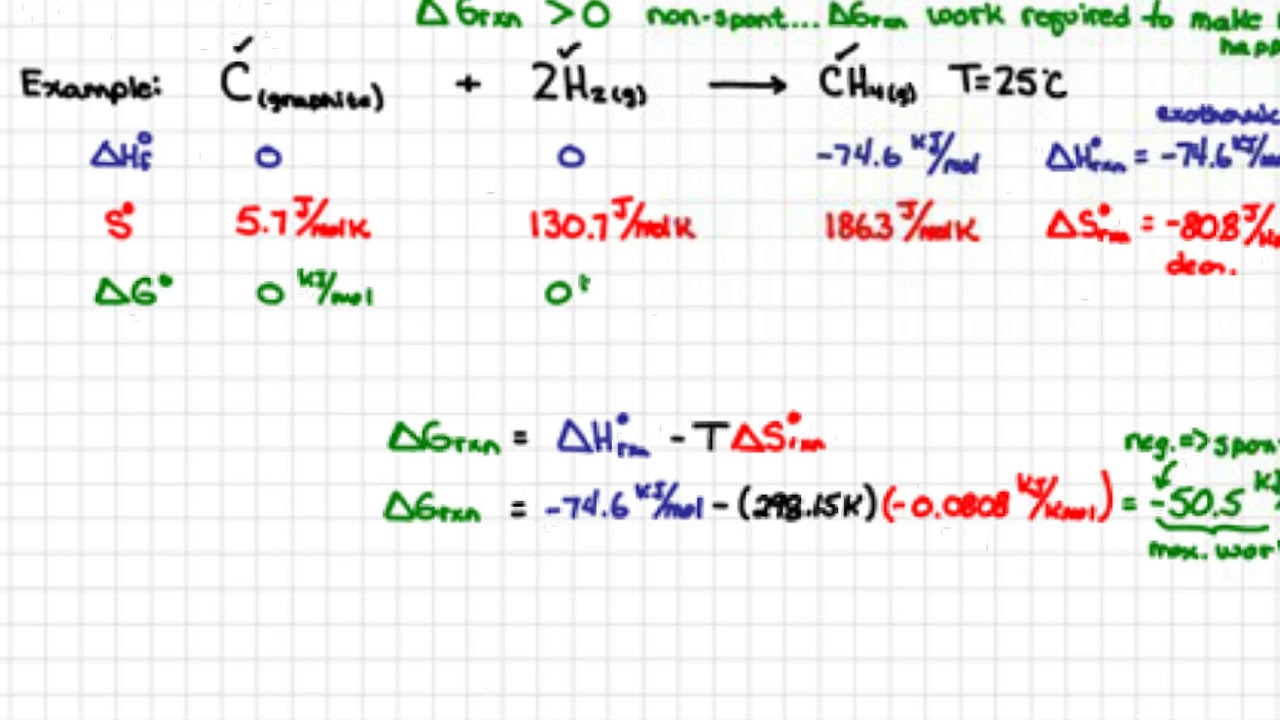 ΔGrxn > 0 non-spont... ΔGrxn work required to make
happ
Example: C(graphite) + 2H₂(g) ⟶ CH₄(g) T=25°C
exothermic
ΔHf° 0 0 -74.6 kJ/mol ΔH°rxn = -74.6 kJ/mol
S° 5.7 J/molK 130.7 J/molK 186.3 J/molK ΔS°rxn = -80.8 J/K
decr.
ΔG° 0 kJ/mol 0
ΔGrxn = ΔH°rxn - TΔS°rxn
neg. => spon
ΔGrxn = -74.6 kJ/mol - (298.15K)(-0.0808 kJ/Kmol) = -50.5 kJ
max. wor